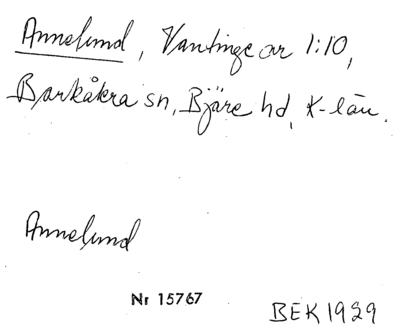 Annelund, Vantinge ar 1:10,
Barkåkra sn, Bjäre hd, K-län.
Annelund
Nr 15767
BEK 1929